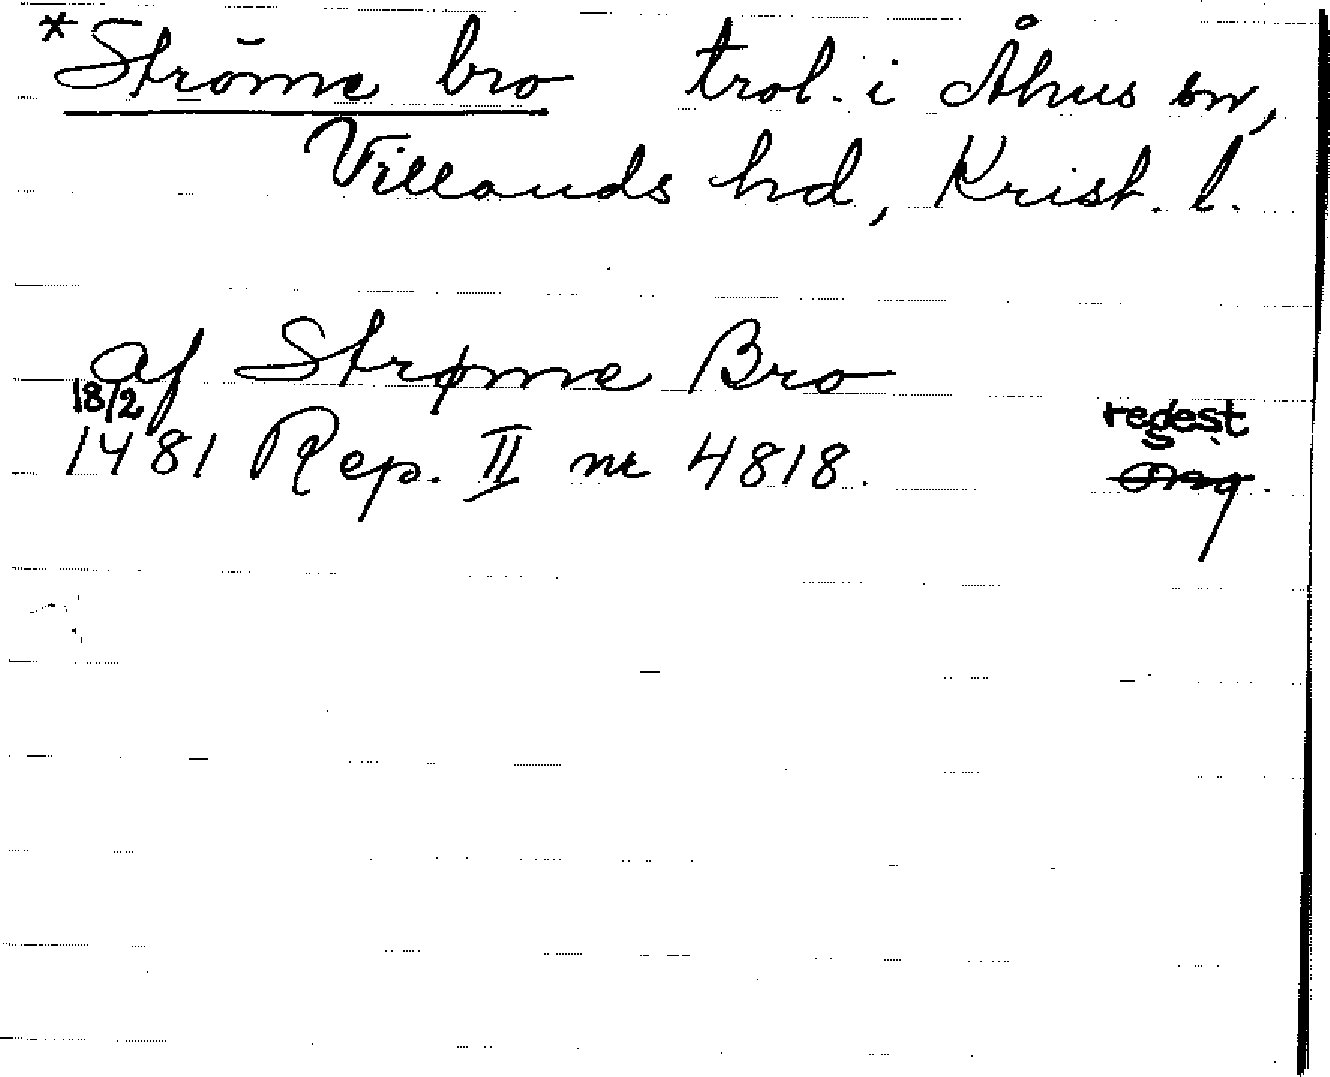 *Ströme bro trol. i Åhus sn,
Villands hd, Krist. l.
af Strøme Bro
18/2
1481 Rep. II nr 4818.
regest